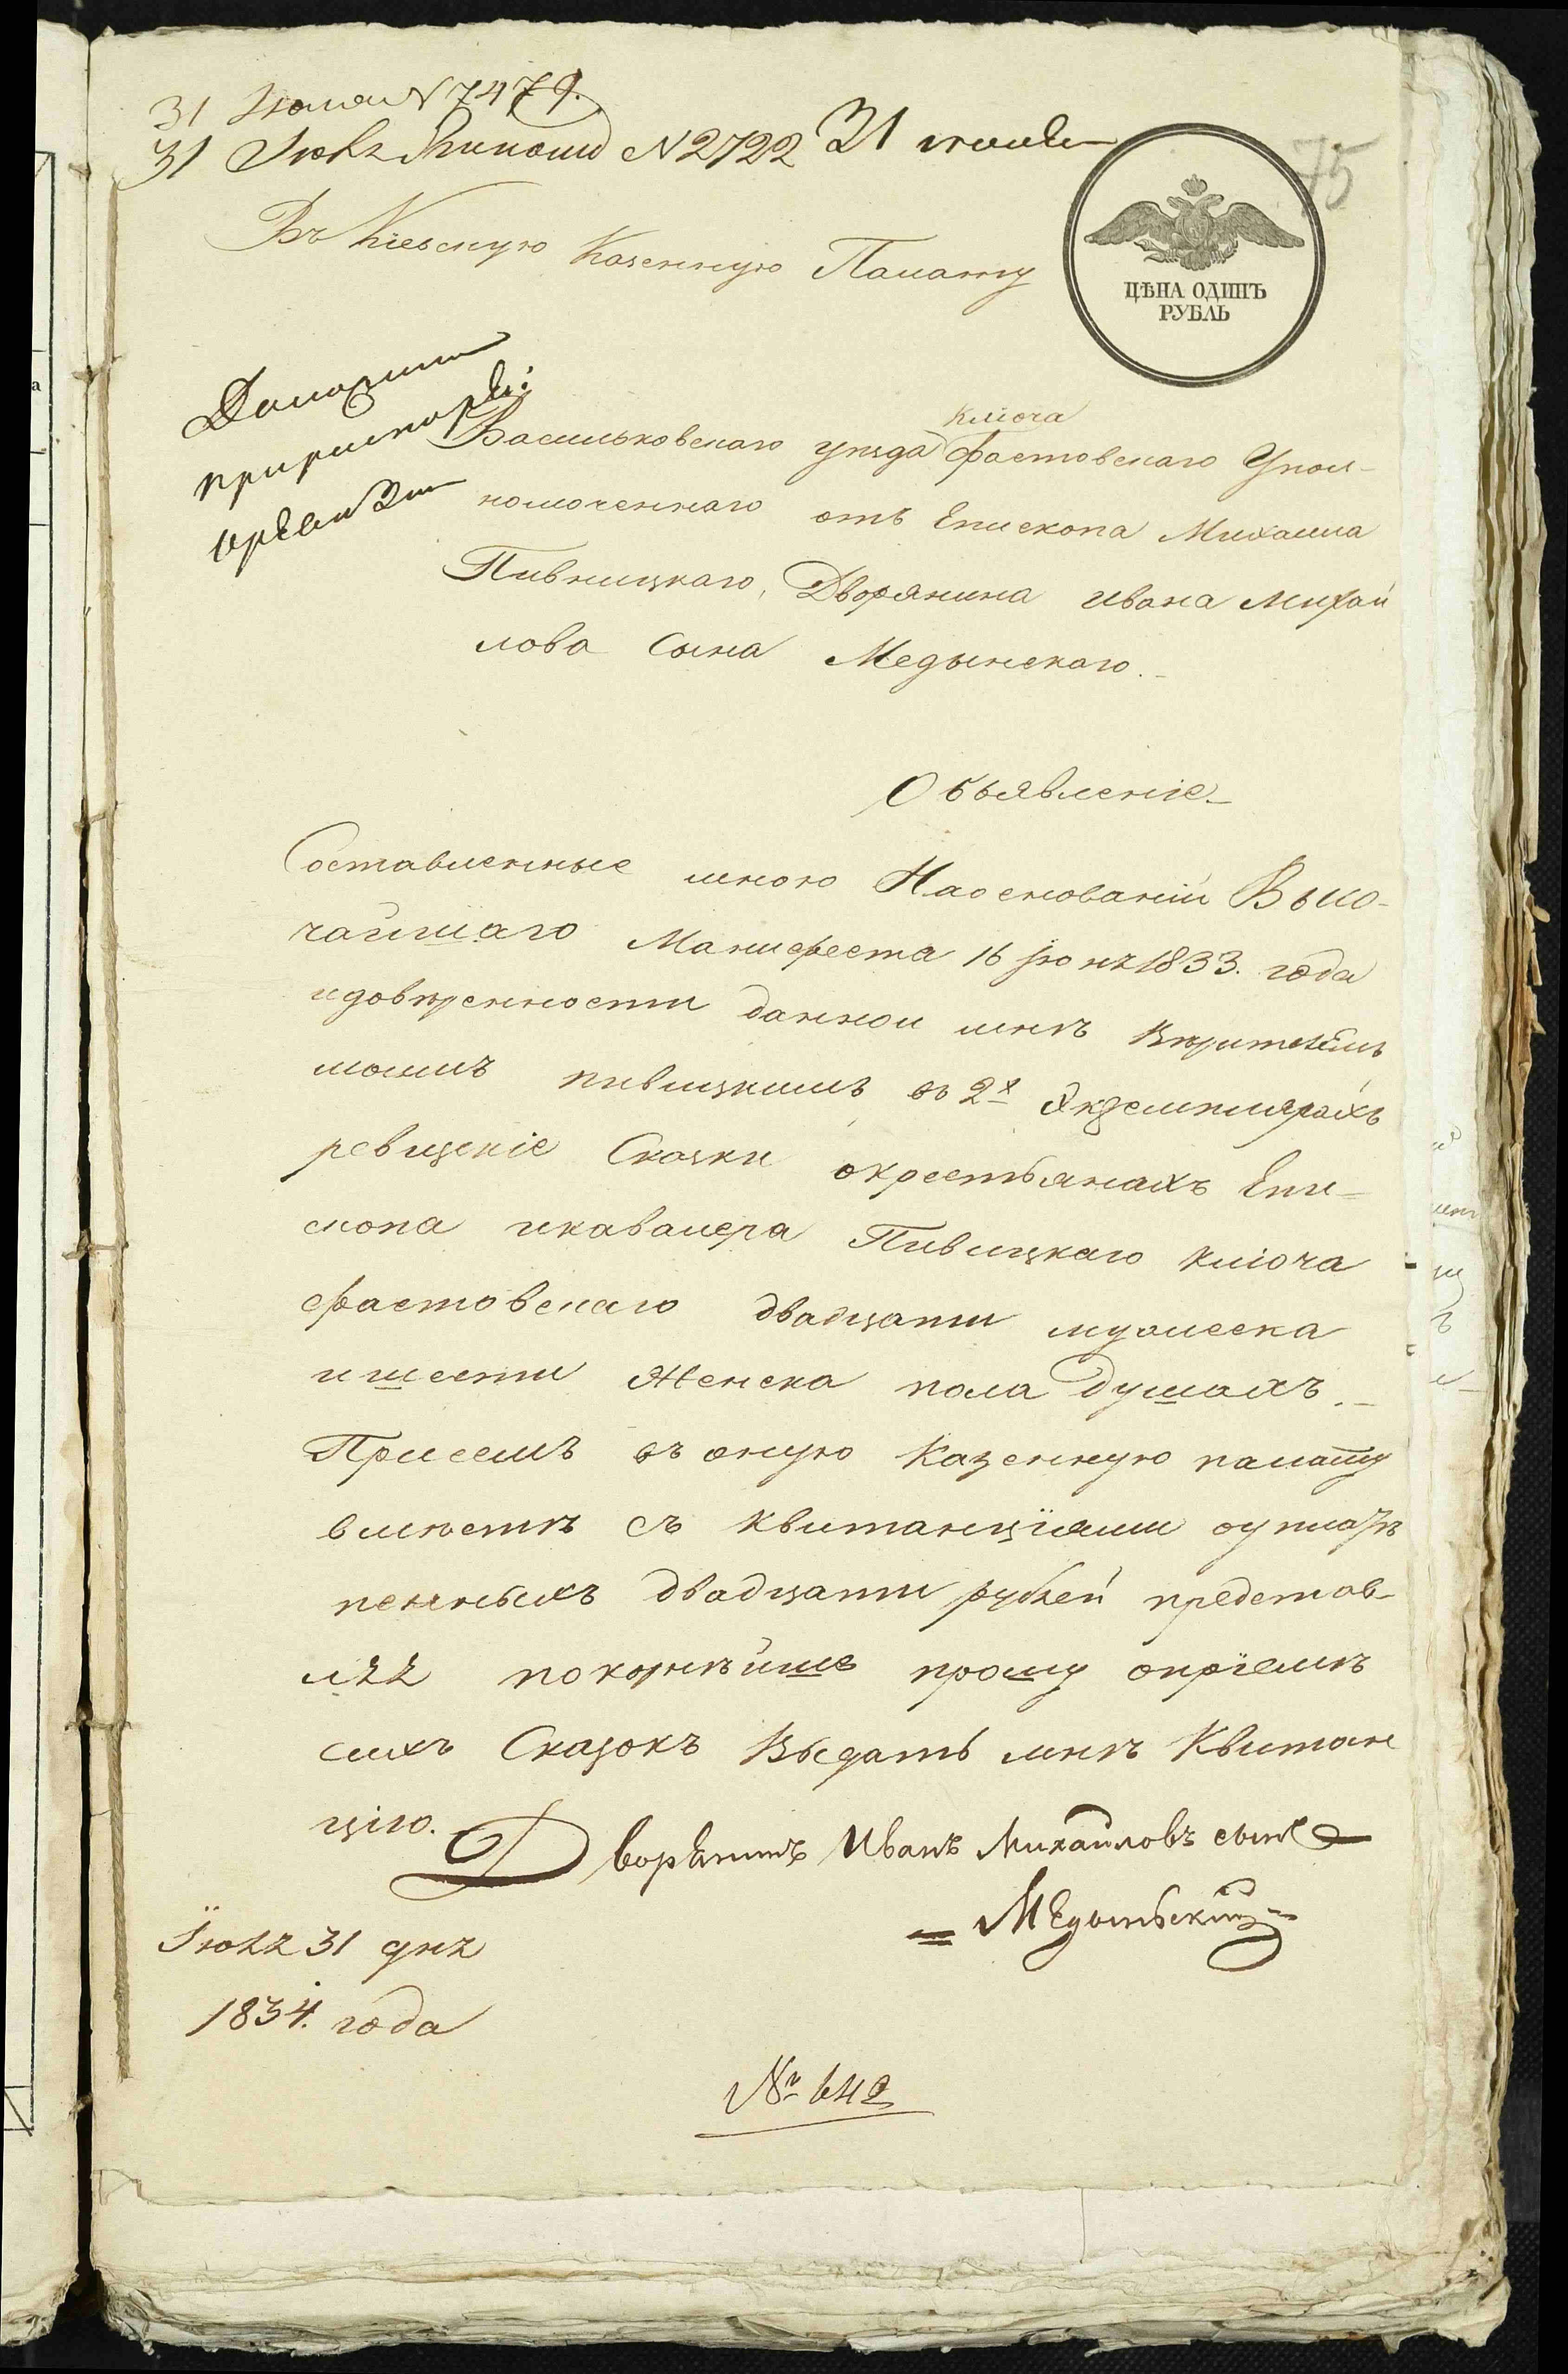 31 Июля N 7479.
31 Июля N 2722 31 июля
75
Въ Кіевскую Казенную Палату
ЦѢНА ОДИНЪ
РУБЛЬ
Доложить
при
ключа
Васильковскаго уѣзда Фастовскаго Упол-
номоченнаго отъ Епископа Михаила
Пивницкаго, Дворянина Ивана Михаи
лова Сына Медынскаго.-
Объявленіе-
Составленные мною На основаніи Высо-
чайшаго Манифеста 16 Іюня 1833. года
и довѣренности данной мнѣ Вѣрителемъ
моимъ пивницкимъ въ 2х Экземплярахъ
ревизскіе Сказки о крестьянахъ Епи-
скопа и кавалера Пивницкаго ключа
Фастовскаго двадцати мужеска
и шести Женска пола душахъ.-
При семъ въ оную Казенную палату
вмѣстѣ съ квитанціями о уплатѣ
пенныхъ двадцати рублей представ-
ляя покорнѣйше прошу о пріемѣ
сихъ Сказокъ Выдать мнѣ Квитан
цію.
Дворянинъ Иванъ Михайловъ сынъ
= Медыньский =
Іюля 31 дня
1834. года
№ 642